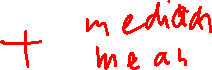 + median
mean